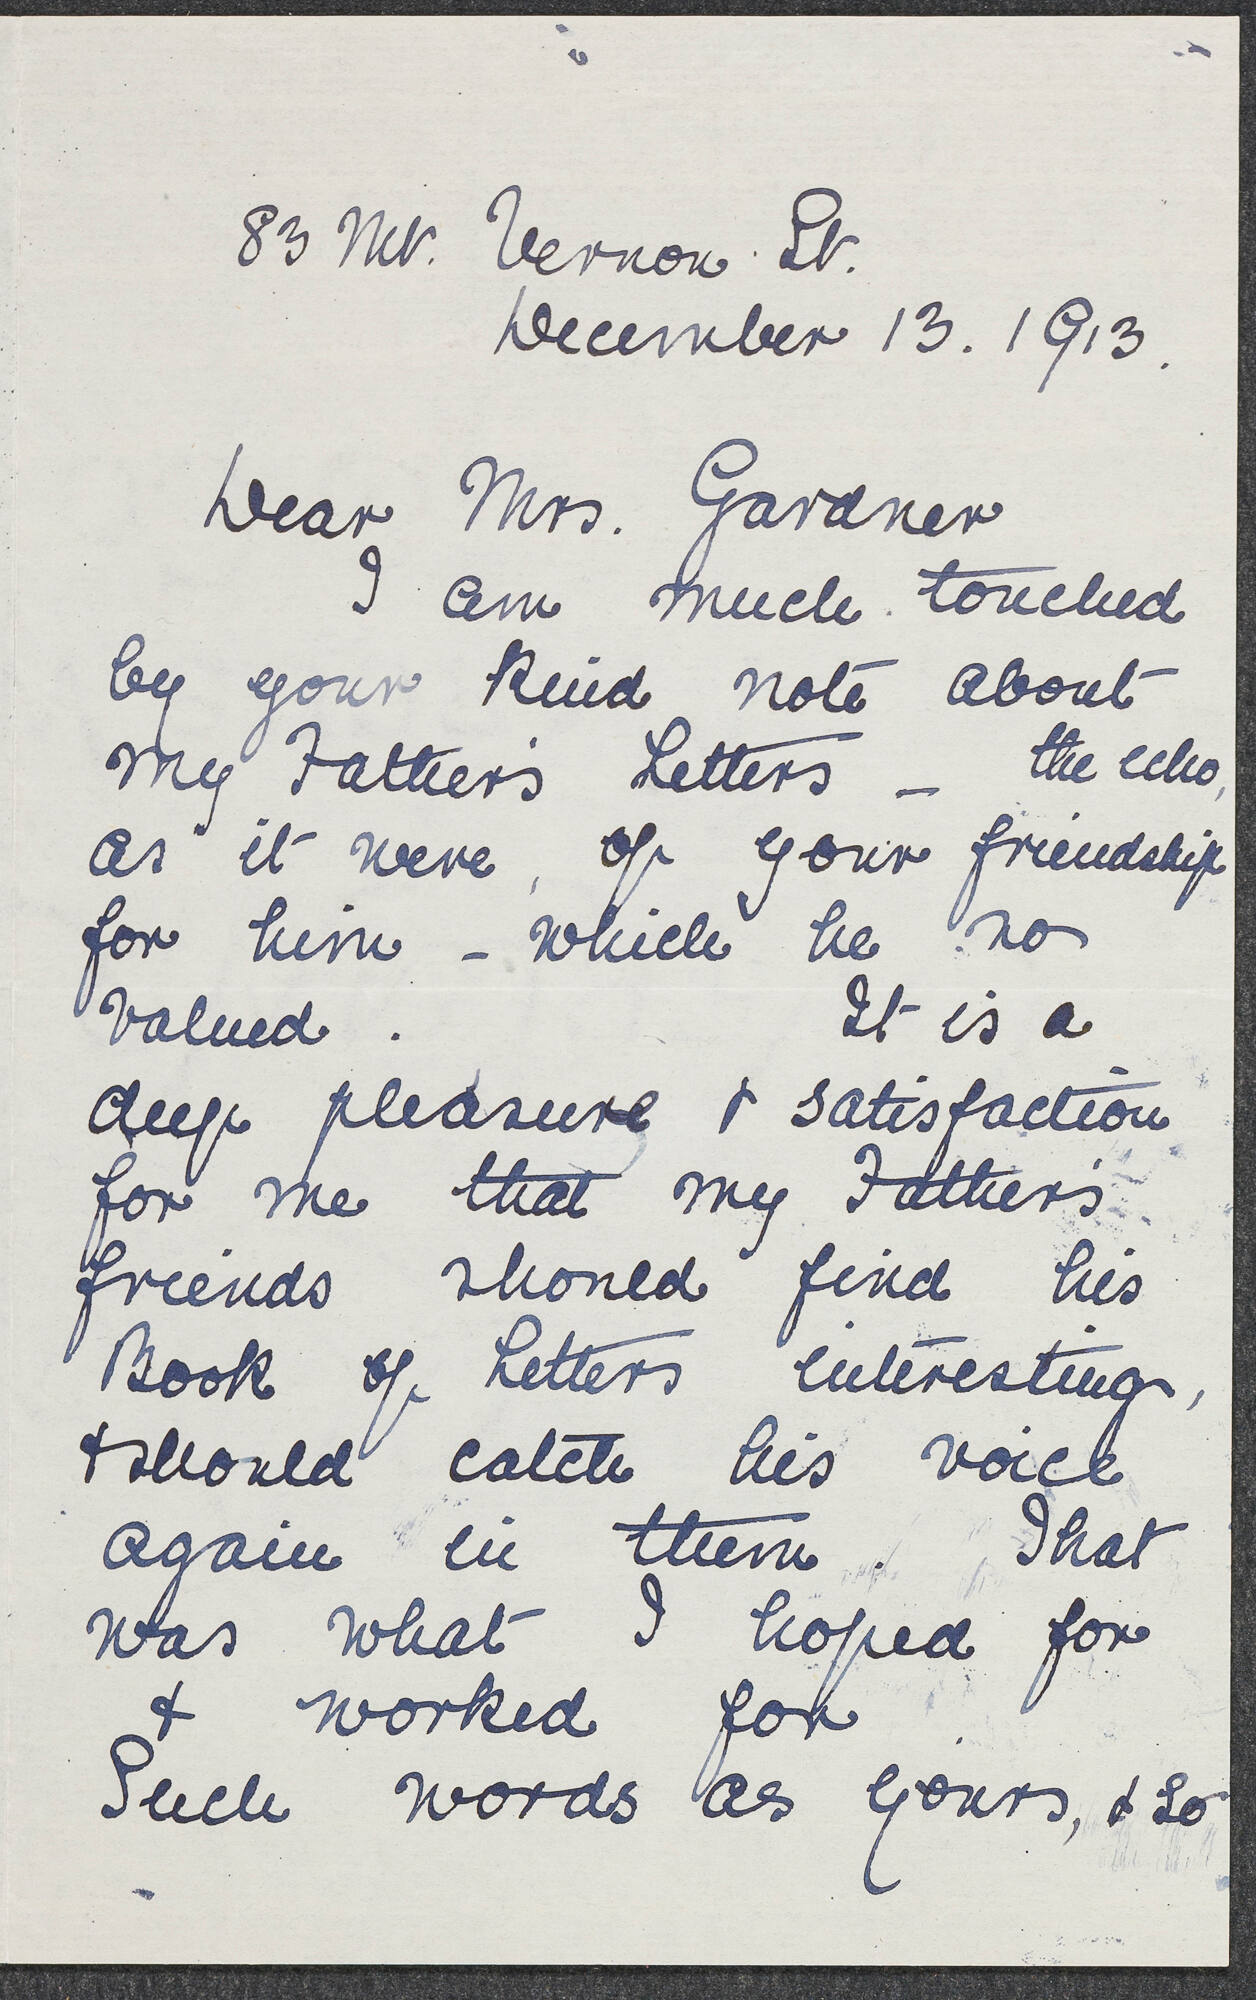 83 Mt. Vernon St.
December 13. 1913.
Dear Mrs. Gardner
I am much touched
by your kind note about
my Father's Letters – the echo,
as it were, of your friendship
for him – which he so
valued. It is a
deep pleasure & satisfaction
for me that my Father's
friends should find his
Book of Letters interesting,
& should catch his voice
again in them. That
was what I hoped for
& worked for
Such words as yours, & so